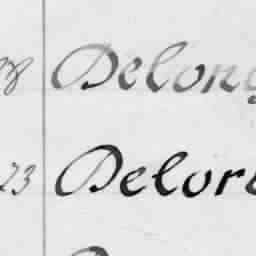 28 Delong
23 Delor